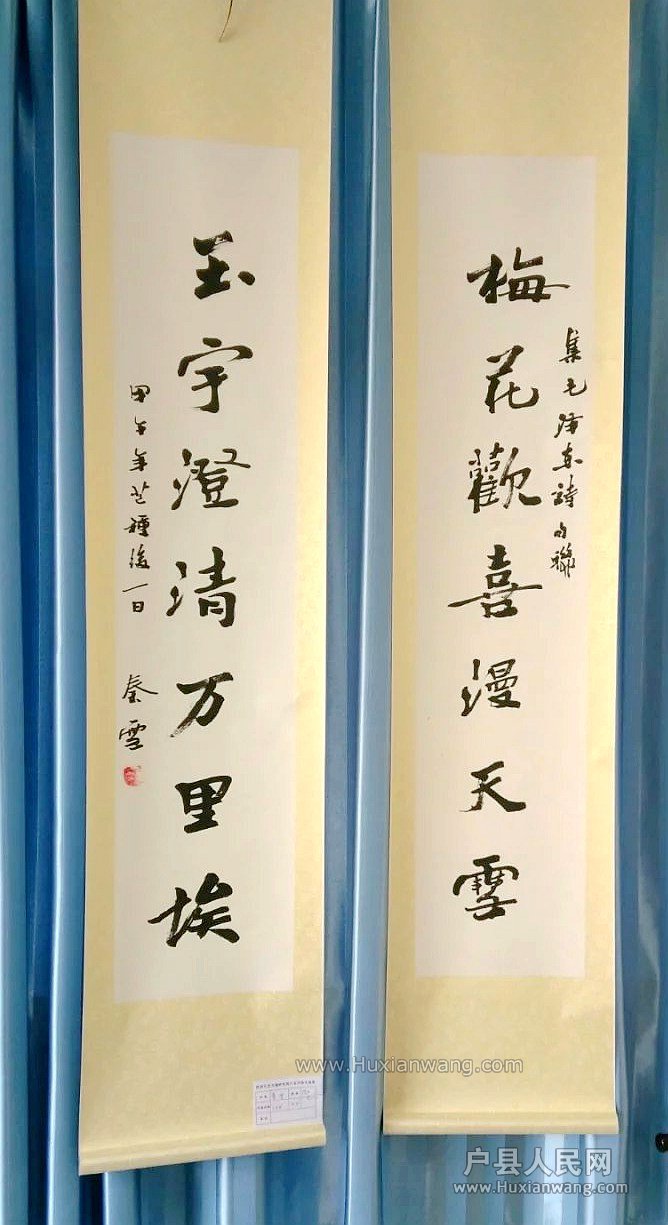 梅花歡喜漫天雪
集毛澤东詩句聯
玉宇澄清万里埃
甲午年芒種後一日
秦雪
www.Huxianwang.com
户县人民网
www.Huxianwang.com